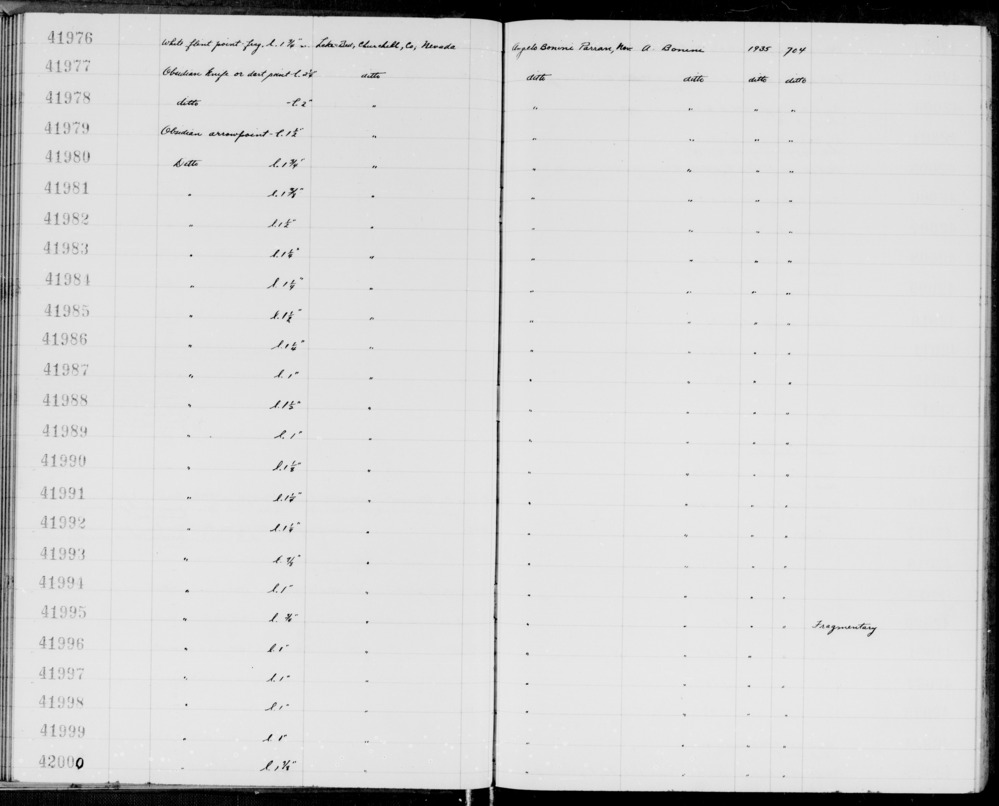 41976 White flint point frag. l. 1 3/4" Lake Bed, Churchill, Co, Nevada Angelo Bonini Parran, Nev A. Bonini 1935 704
41977 Obsidian knife or dart point l. ditto ditto ditto ditto ditto
41978 ditto - l. 2" " " " " "
41979 Obsidian arrowpoint - l. 1 1/2" " " " " "
41980 Ditto l. 1 3/4" " " " " "
41981 " l. 1 3/4" " " " " "
41982 " l. 1 1/2" " " " " "
41983 " l. 1 " " " " "
41984 " l. 1 1/4" " " " " "
41985 " l. 1 1/2" " " " " "
41986 " l. 1 1/4" " " " " "
41987 " l. 1" " " " " "
41988 " l. 1 " " " " "
41989 " l. 1" " " " " "
41990 " l. 1 " " " " "
41991 " l. 1 1/4" " " " " "
41992 " l. 1 " " " " "
41993 " l. " " " " "
41994 " l. 1" " " " " "
41995 " l. 3/4" " " " " " Fragmentary
41996 " l. 1" " " " " "
41997 " l. 1" " " " " "
41998 " l. 1" " " " " "
41999 " l. 1" " " " " "
42000 " l. 1 " " " " "